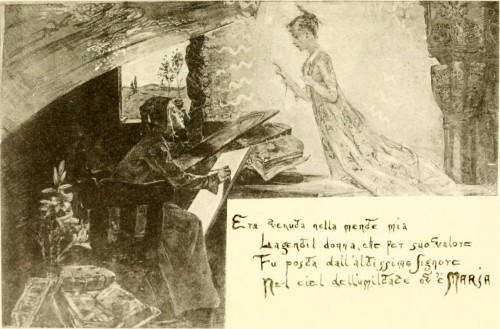 Era venuta nella mente mia
La gentil donna, che per suo valore
Fu posta dall'altissimo signore
Nel ciel dell'umiltate ov'è MARIA